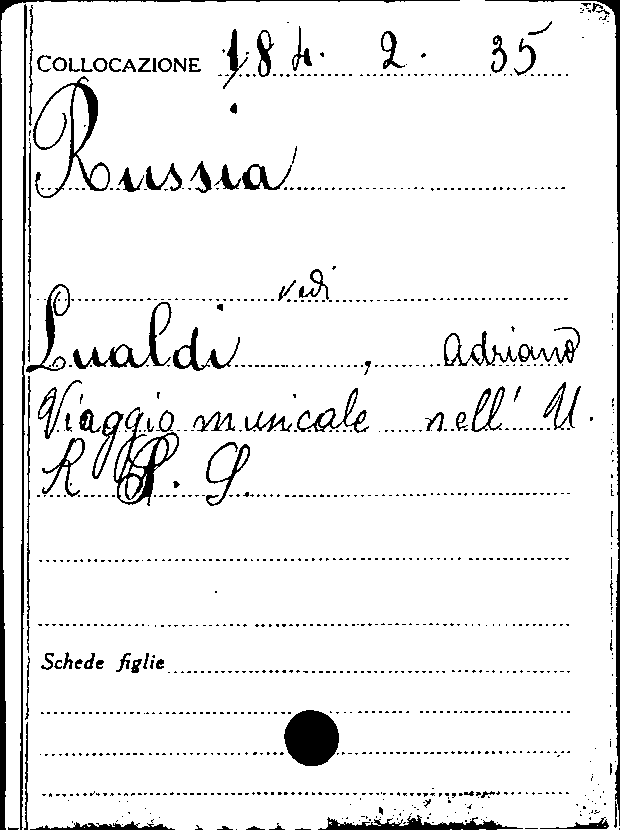 COLLOCAZIONE 184. 2. 35
Russia
vedi
Lualdi, Adriano
Viaggio musicale nell' U.
R. P. S.
Schede figlie